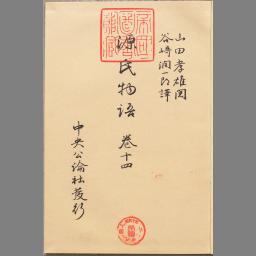 山田孝雄閲
谷崎潤一郎譯
源氏物語 卷十四
中央公論社發行